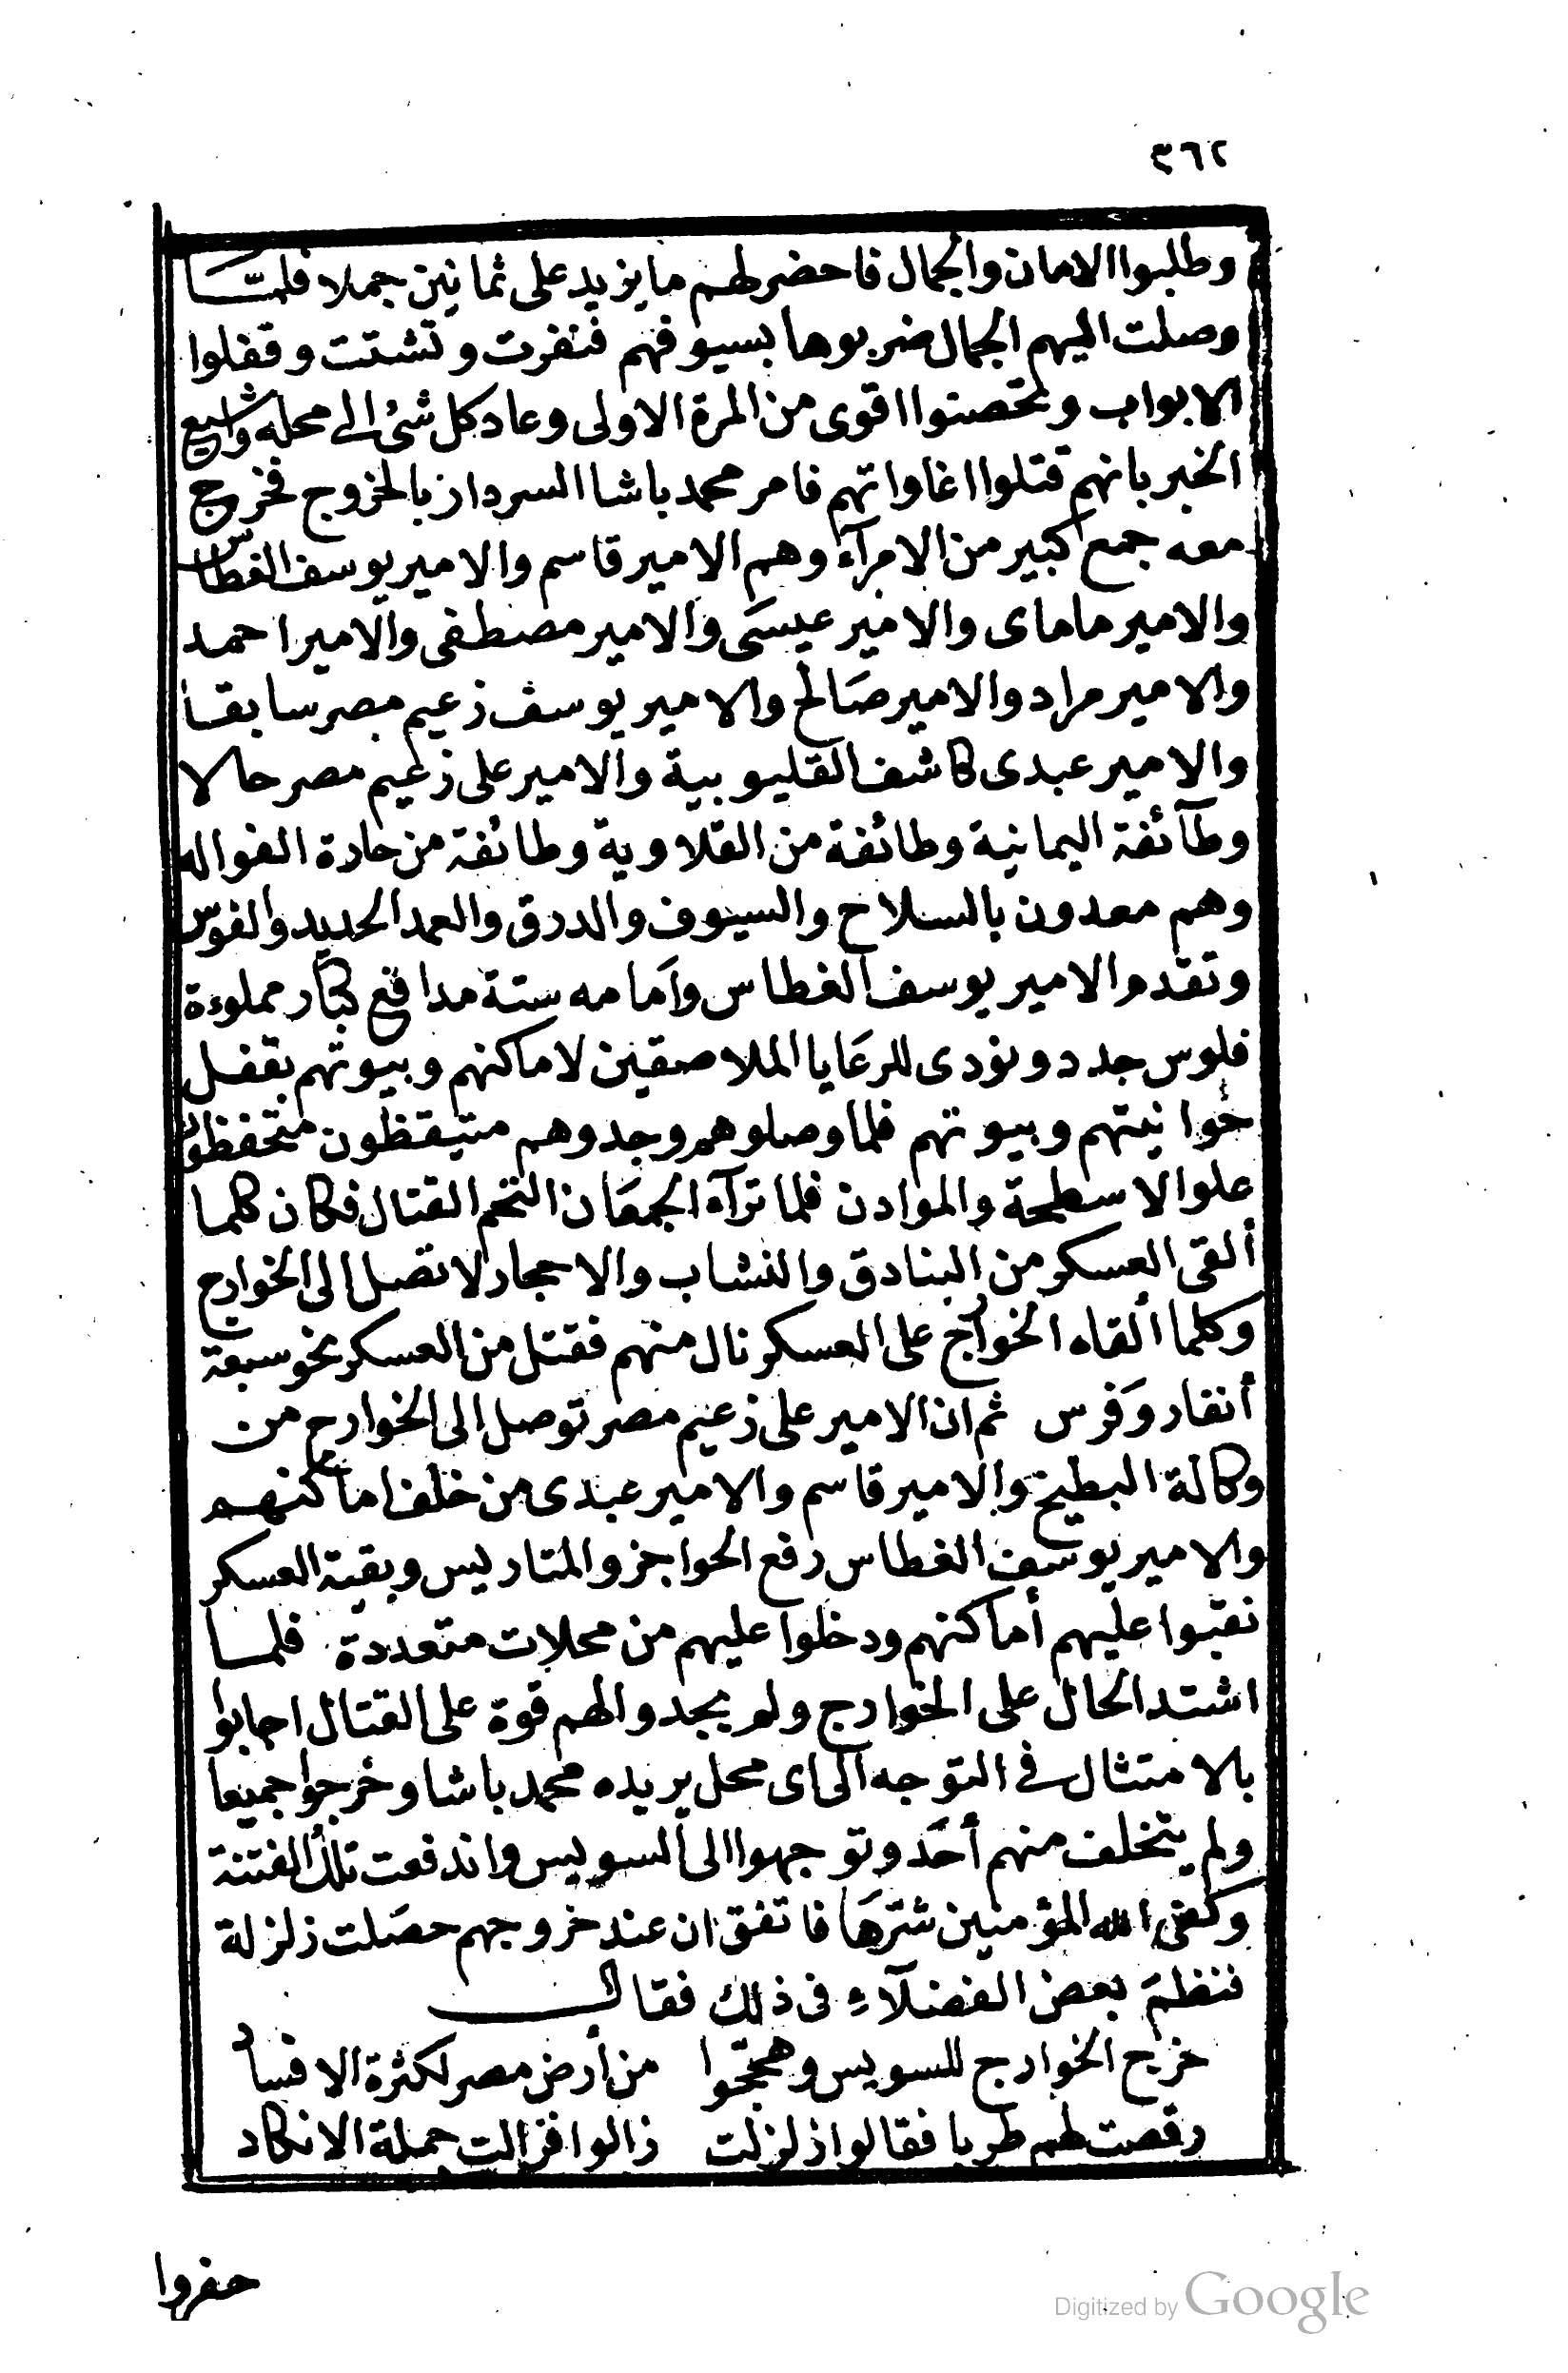 ٣٦٢
وطلبوا الامان والجمال فاحضر لهم ما يزيد على ثمانين جملا فلمّا
وصلت اليهم الجمال ضربوها بسيوفهم فنفرت وتشتت وقفلوا
الابواب وتحصنوا اقوى من المرة الاولى وعاد كل شئ الى محله واشيع
الخبر بانهم قتلوا اغاواتهم فامر محمد باشا السردار بالخروج فخرج
معه جمع كبير من الامرآء وهم الامير قاسم والامير يوسف الغطاس
والامير ماماى والامير عيسَى والامير مصطفى والامير احمد
والامير مراد والامير صَالح والامير يوسف زعيم مصر سابقا
والامير عبدى كاشف القليوبية والامير على زعيم مصر حالا
وطآئفة اليمانية وطائفة من القلاوية وطائفة من حارة الفواله
وهم معدون بالسلاح والسيوف والدرق والعمد الحديد والفوس
وتقدم الامير يوسف الغطاس وأمامه ستة مدافع كبار مملوءة
فلوس جدد ونودى للرعَايا الملاصقين لاماكنهم وبيوتهم بقفل
حوانيتهم وبيوتهم فلما وصلوهم وجدوهم متيقظون متحفظون
علوا الاسطحة والموادن فلما ترآه الجمعَان التحم القتال فكان كلما
ألقى العسكر من البنادق والنشاب والاحجار لا تصل الى الخوارج
وكلما ألقاه الخوارج على العسكر نال منهم فقتل من العسكر نحو سبعة
أنفار وَفرس ثم ان الامير على زعيم مصر توصل الى الخوارج من
وكالة البطيخ والامير قاسم والامير عبدى من خلف اماكنهم
والامير يوسف الغطاس رفع الحواجز والمتاريس وبقية العسكر
نقبوا عليهم أماكنهم ودخلوا عليهم من محلات متعددة فلما
اشتد الحال على الخوارج ولم يجدوا لهم قوة على القتال اجابوا
بالامتثال فى التوجه الى اى محل يريده محمد باشا وخرجوا جميعا
ولم يتخلف منهم أحَد وتوجهوا الى السويس واندفعت تلك الفتنة
وكفى الله المؤمنين شرّهَا فاتفق ان عند خروجهم حصَلت زلزلة
فنظمَ بعض الفضلآءِ فى ذلك فقال
خرج الخوارج للسويس وهججوا من أرض مصر لكثرة الافساد
رقصت لهم طربا فقالوا زلزلت زالوا فزالت جملة الانكاد
حفروا
Digitized by Google